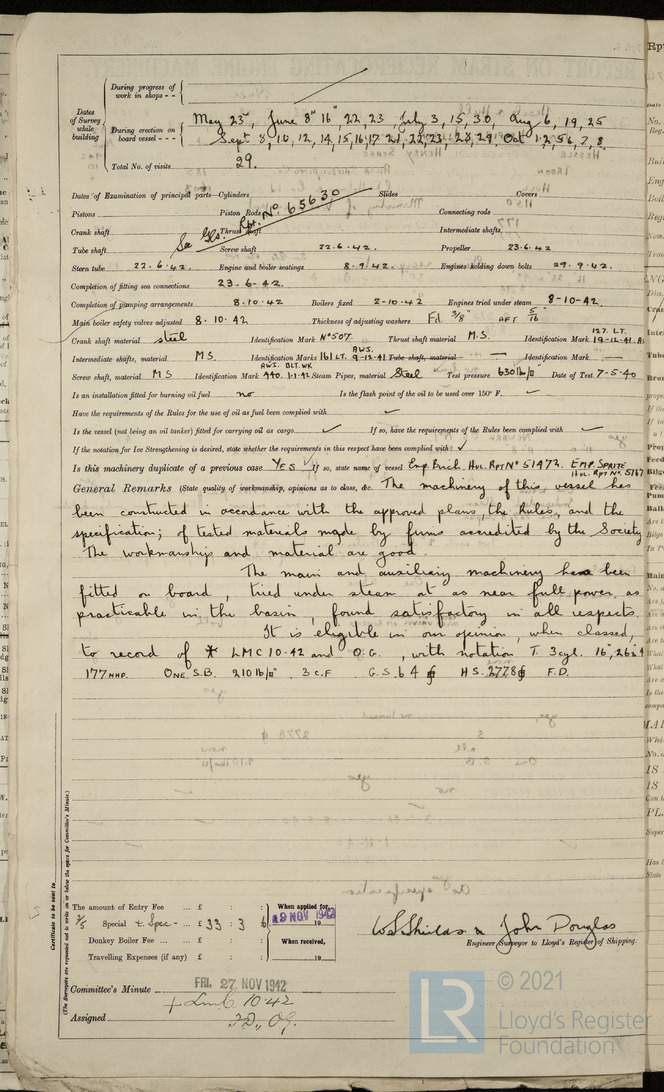 During progress of
work in shops - -
Dates
of Survey
while
building
During erection on
board vessel - - -
May 23rd, June 8th 16th, 22, 23, July 3, 15, 30, Aug 6, 19, 25
Sept 8, 10, 12, 14, 15, 16, 17 21, 22, 23, 28, 29. Oct 1, 2, 5, 6, 7, 8.
Total No. of visits 29.
Dates of Examination of principal parts—Cylinders Slides Covers
Pistons Piston Rods Connecting rods
See Gls. Rpt. No. 65630
Crank shaft Thrust shaft Intermediate shafts
Tube shaft Screw shaft 22.6.42. Propeller 23.6.42
Stern tube 22.6.42. Engine and boiler seatings 8.9.42. Engines holding down bolts 29.9.42.
Completion of fitting sea connections 23.6.42.
Completion of pumping arrangements 8.10.42 Boilers fixed 2.10.42 Engines tried under steam 8-10-42.
Main boiler safety valves adjusted 8.10.42 Thickness of adjusting washers Fd 3/8" AFT 5/16
Crank shaft material steel Identification Mark No 507. Thrust shaft material M.S. Identification Mark 127. LT. 19-12-41.
Intermediate shafts, material M.S. Identification Marks 161 LT. AWS. 9-12-41 Tube shaft, material — Identification Mark —
Screw shaft, material MS Identification Mark AWS. BLT. WK 440. 1.1.42 Steam Pipes, material Steel Test pressure 630 lb/□" Date of Test 7-5-40
Is an installation fitted for burning oil fuel no Is the flash point of the oil to be used over 150° F.
Have the requirements of the Rules for the use of oil as fuel been complied with ✓
Is the vessel (not being an oil tanker) fitted for carrying oil as cargo ✓ If so, have the requirements of the Rules been complied with ✓
If the notation for Ice Strengthening is desired, state whether the requirements in this respect have been complied with ✓
Is this machinery duplicate of a previous case YES If so, state name of vessel Emp. Birch. Hul. Rpt No 51472. EMP. SPRITE Hul. Rpt No. 5167
General Remarks (State quality of workmanship, opinions as to class, &c. The machinery of this vessel has
been constructed in accordance with the approved plans, the Rules, and the
specification; of tested materials made by firms accredited by the Society
The workmanship and material are good.
The main and auxiliary machinery has been
fitted on board, tried under steam at as near full power, as
practicable in the basin, found satisfactory in all respects.
It is eligible in our opinion, when classed,
to record of * LMC 10.42 and O.G., with notation T. 3 cyl. 16", 26
177 NHP. ONE S.B. 210 lb/□". 3 C.F G.S. 64 ϕ H S. 2778 ϕ F.D.
Certificate to be sent to
(The Surveyors are requested not to write on or below the space for Committee's Minute.)
The amount of Entry Fee ... £ : :
3/5 Special + Spec- ... £ 33 : 3
Donkey Boiler Fee ... £ : :
Travelling Expenses (if any) £ : :
When applied for,
19 NOV 1942
19
When received,
19
W.S. Shields & John Douglas
Engineer Surveyor to Lloyd's Register of Shipping.
Committee's Minute FRI. 27 NOV 1942
+ Lmc 10.42
Assigned F.D., OG.
LR
© 2021
Lloyd's Register
Foundation